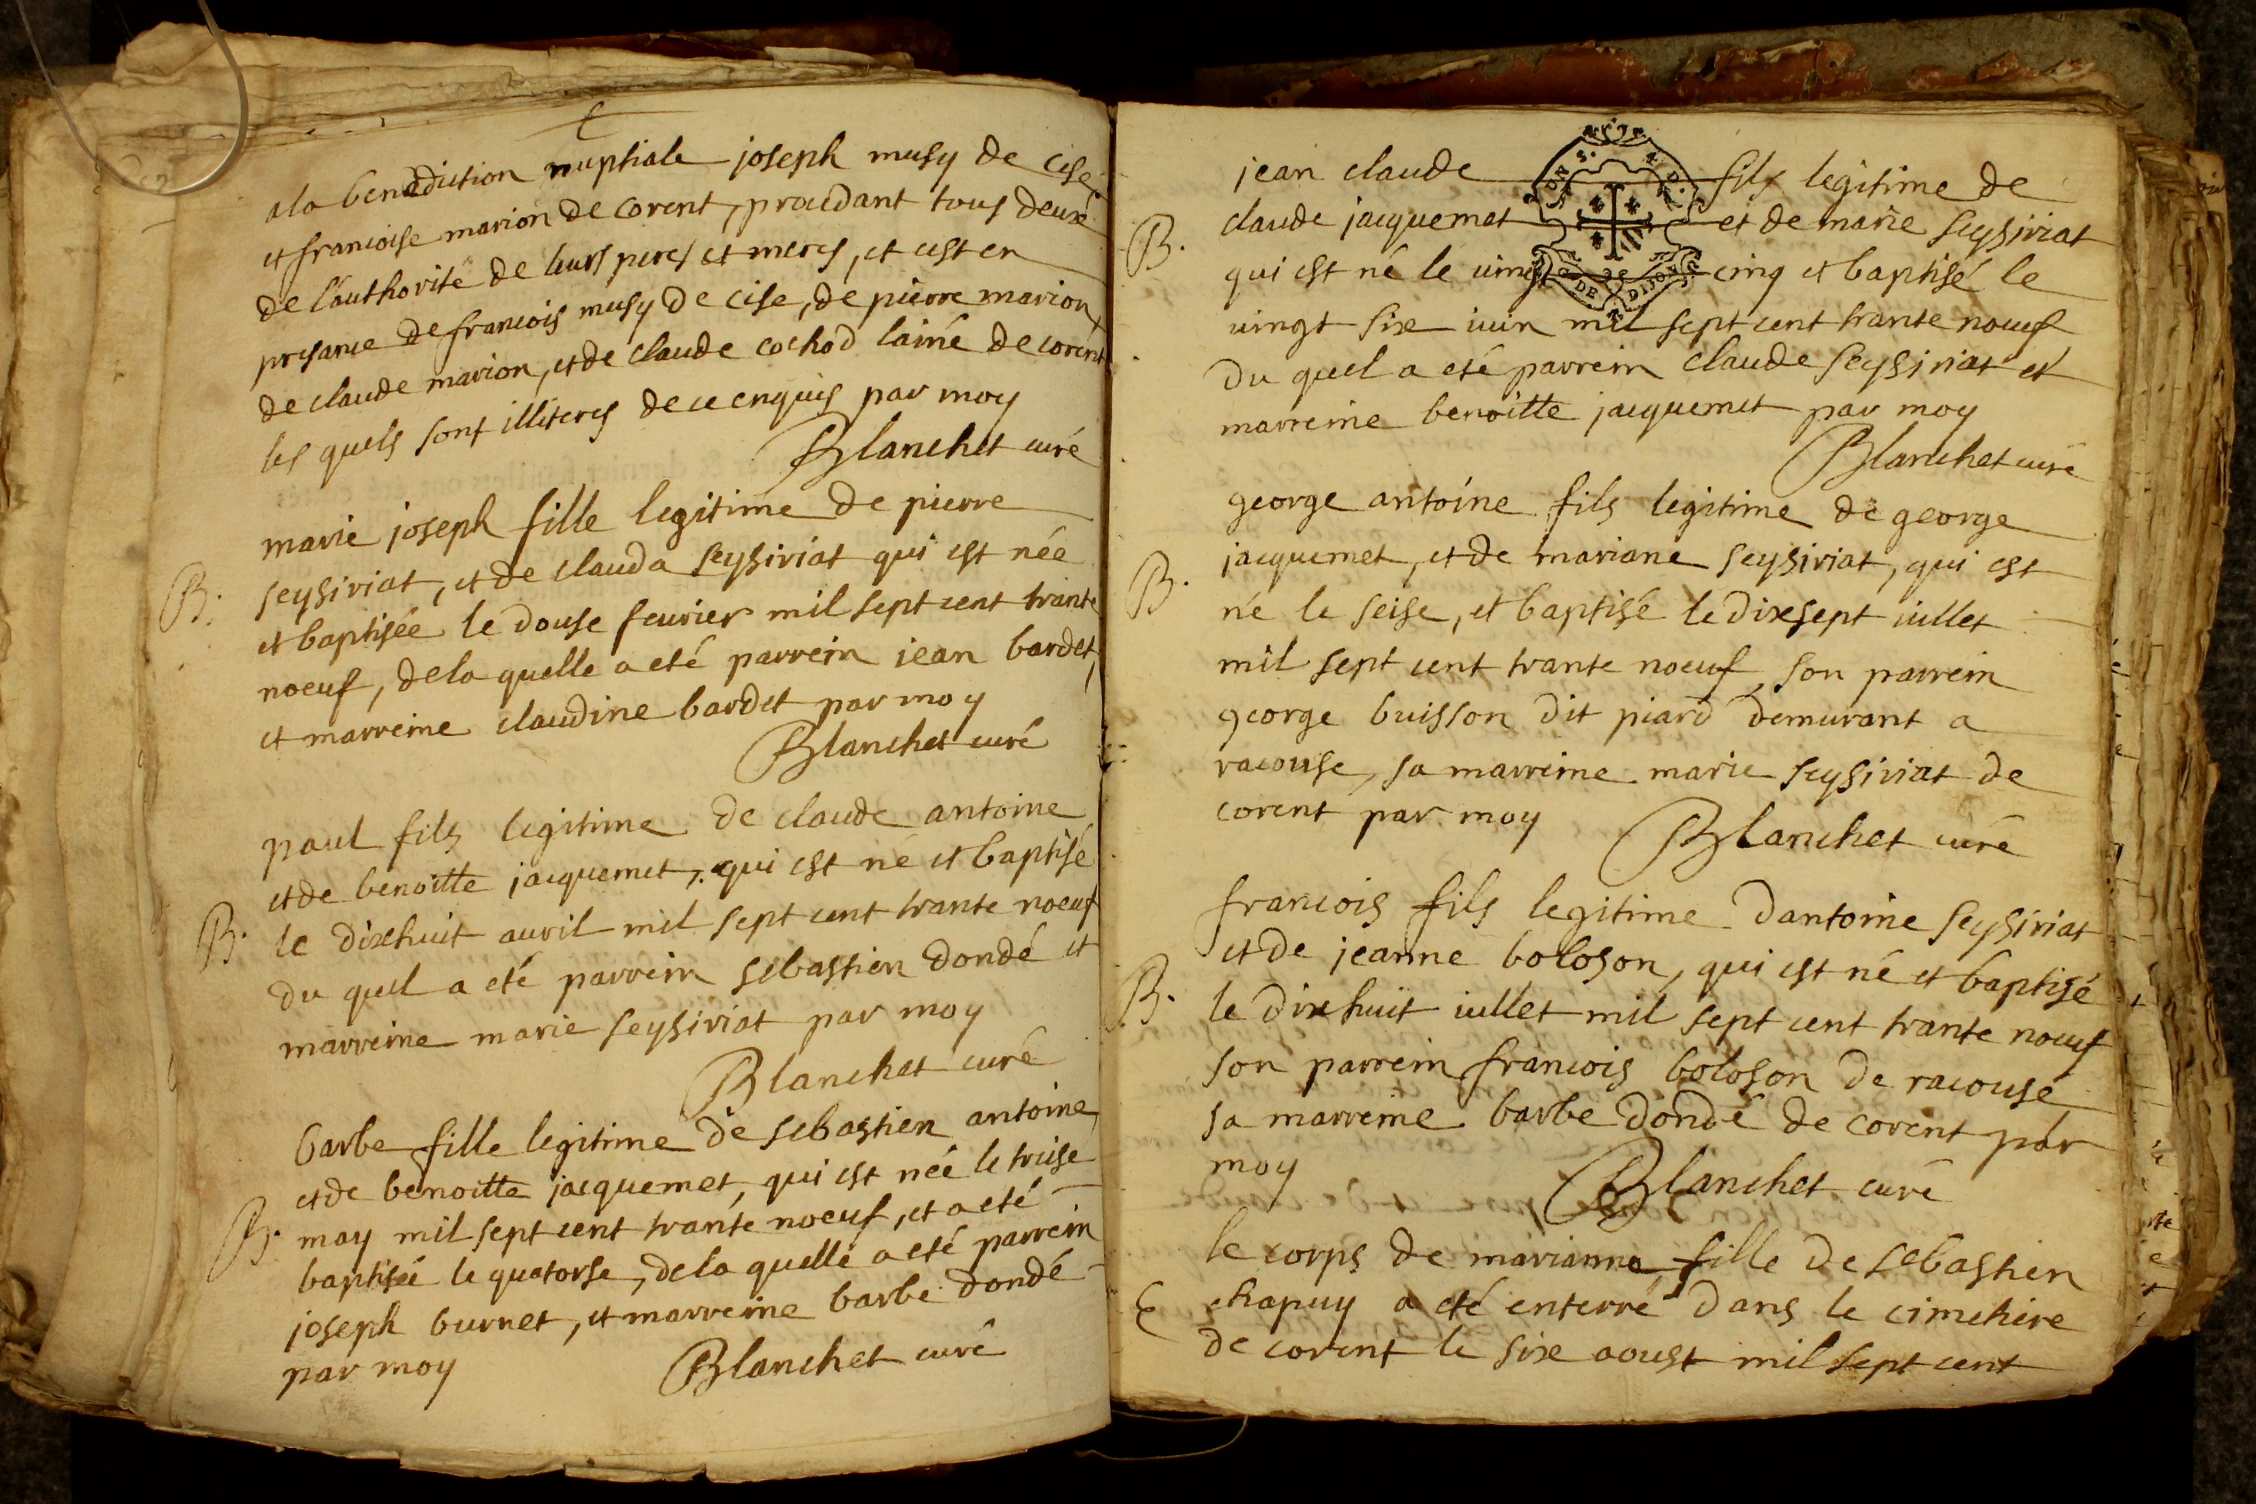 a la benediction nuptiale joseph musy de cise
et francoise marion de corent, procedant tous deux
de l'authorité de leurs peres et meres, et cest en
presance de francois musy de cise, de pierre marion,
de claude marion, et de claude cochod lainé de corent
les quels sont illiteres de ce enquis par moy
Blanchet curé
marie joseph fille legitime de pierre
B. seysiriat, et de clauda seysiriat qui est née
et baptisée le douse feurier mil sept cent trante
noeuf, de la quelle a eté parrein jean bardet,
et marreine claudine bardet par moy
Blanchet curé
paul fils legitime de claude antoine
et de benoitte jacquemet, qui est né et baptisé
B. le dixhuit auril mil sept cent trante noeuf
du quel a eté parrein sebastien dondé et
marreine marie seysiriat par moy
Blanchet curé
barbe fille legitime de sebastien antoine
et de benoitte jacquemet, qui est née le treise
B. may mil sept cent trante noeuf, et a eté
baptisée le quatorse, de la quelle a eté parrein
joseph burnet, et marreine barbe dondé
par moy Blanchet curé
jean claude fils legitime de
B. claude jacquemet et de marie seysiriat
qui est né le uingt cinq et baptisé le
uingt six iuin mil sept cent trante noeuf
du quel a eté parrein claude seysiriat et
marreine benoitte jacquemet par moy
Blanchet curé
george antoine fils legitime de george
B. jacquemet, et de mariane seysiriat, qui est
né le seise, et baptisé le dixsept iullet
mil sept cent trante noeuf, son parrein
george buisson dit piard demurant a
racouse, sa marreine marie seysiriat de
corent par moy Blanchet curé
francois fils legitime dantoine seysiriat
et de jeanne boloson, qui est né et baptisé
B. le dixhuit iullet mil sept cent trante noeuf
son parrein francois boloson de racouse
sa marreine barbe dondé de corent par
moy Blanchet curé
le corps de marianne fille de sebastien
E chapuy a eté enterré dans le cimetiere
de corent le six aoust mil sept cent